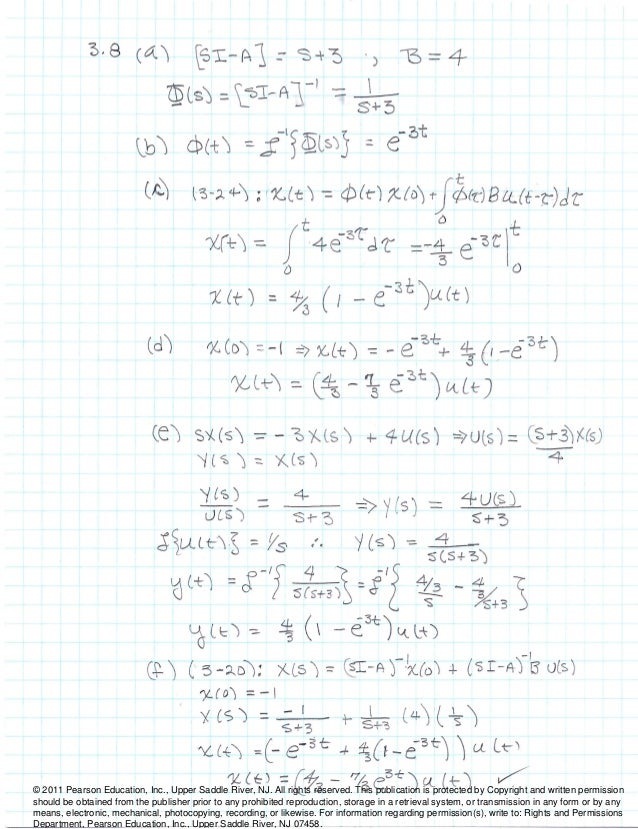 3.8 (a) [SI-A] = S+3 ; B = 4
Φ(s) = [SI-A]⁻¹ = 1/(S+3)
(b) φ(t) = ℒ⁻¹{Φ(s)} = e^(-3t)
(c) (3-24): x(t) = φ(t) x(0) + ∫₀ᵗ φ(τ) B u(t-τ) dτ
x(t) = ∫₀ᵗ 4e^(-3τ) dτ = -4/3 e^(-3τ) |₀ᵗ
x(t) = 4/3 (1 - e^(-3t)) u(t)
(d) x(0) = -1 ⇒ x(t) = -e^(-3t) + 4/3 (1 - e^(-3t))
x(t) = (4/3 - 7/3 e^(-3t)) u(t)
(e) SX(s) = -3X(s) + 4U(s) ⇒ U(s) = (S+3)X(s)/4
Y(s) = X(s)
Y(s)/U(s) = 4/(S+3) ⇒ Y(s) = 4U(s)/(S+3)
ℒ{u(t)} = 1/s ∴ Y(s) = 4/(S(S+3))
y(t) = ℒ⁻¹{4/(S(S+3))} = ℒ⁻¹{(4/3)/S - (4/3)/(S+3)}
y(t) = 4/3 (1 - e^(-3t)) u(t)
(f) (3-20): X(s) = (SI-A)⁻¹x(0) + (SI-A)⁻¹B U(s)
x(0) = -1
X(s) = -1/(S+3) + 1/(S+3) (4) (1/s)
x(t) = (-e^(-3t) + 4/3(1-e^(-3t))) u(t)
x(t) = (4/3 - 7/3 e^(-3t)) u(t) ✓
© 2011 Pearson Education, Inc., Upper Saddle River, NJ. All rights reserved. This publication is protected by Copyright and written permission
should be obtained from the publisher prior to any prohibited reproduction, storage in a retrieval system, or transmission in any form or by any
means, electronic, mechanical, photocopying, recording, or likewise. For information regarding permission(s), write to: Rights and Permissions
Department, Pearson Education, Inc., Upper Saddle River, NJ 07458.